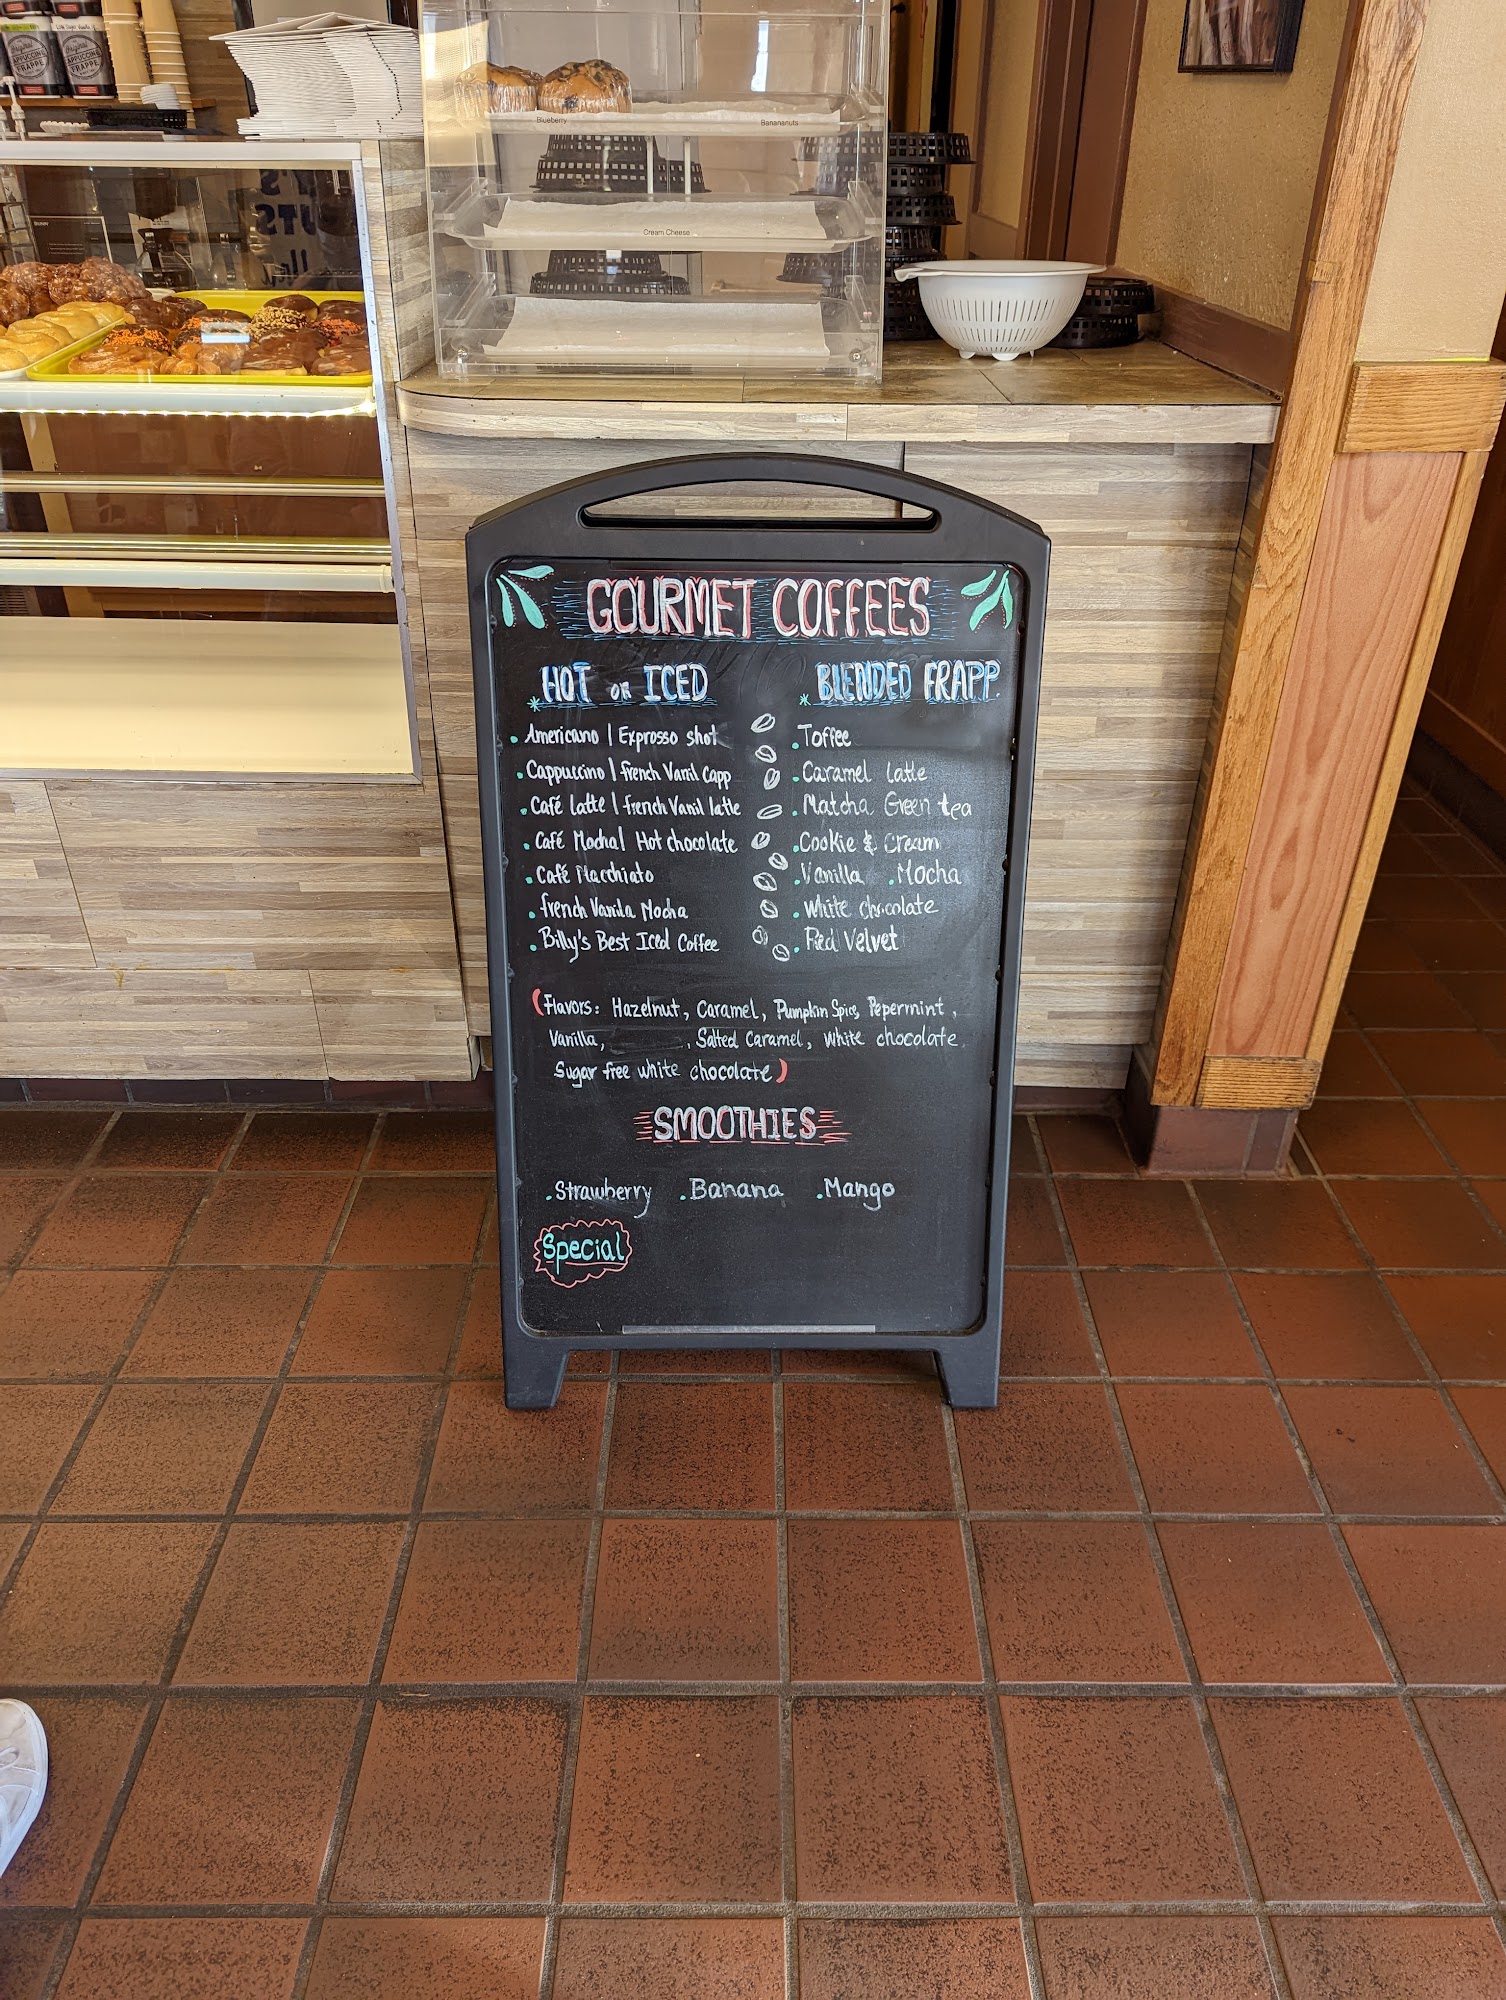 Original
CAPPUCCINE
FRAPPE
Original
CAPPUCCINE
FRAPPE
Blueberry
Banananuts
Cream Cheese
GOURMET COFFEES
HOT OR ICED
Americano | Exprosso shot
Cappuccino | french Vanil Capp
Café latte | french Vanil latte
Café Mocha | Hot chocolate
Café Macchiato
french Vanila Mocha
Billy's Best Iced Coffee
BLENDED FRAPP.
Toffee
Caramel latte
Matcha Green tea
Cookie & Cream
Vanilla . Mocha
White chocolate
Red Velvet
(Flavors: Hazelnut, Caramel, Pumpkin Spice, Pepermint,
Vanilla, , Salted Caramel, White chocolate,
Sugar free white chocolate)
SMOOTHIES
.Strawberry .Banana .Mango
Special